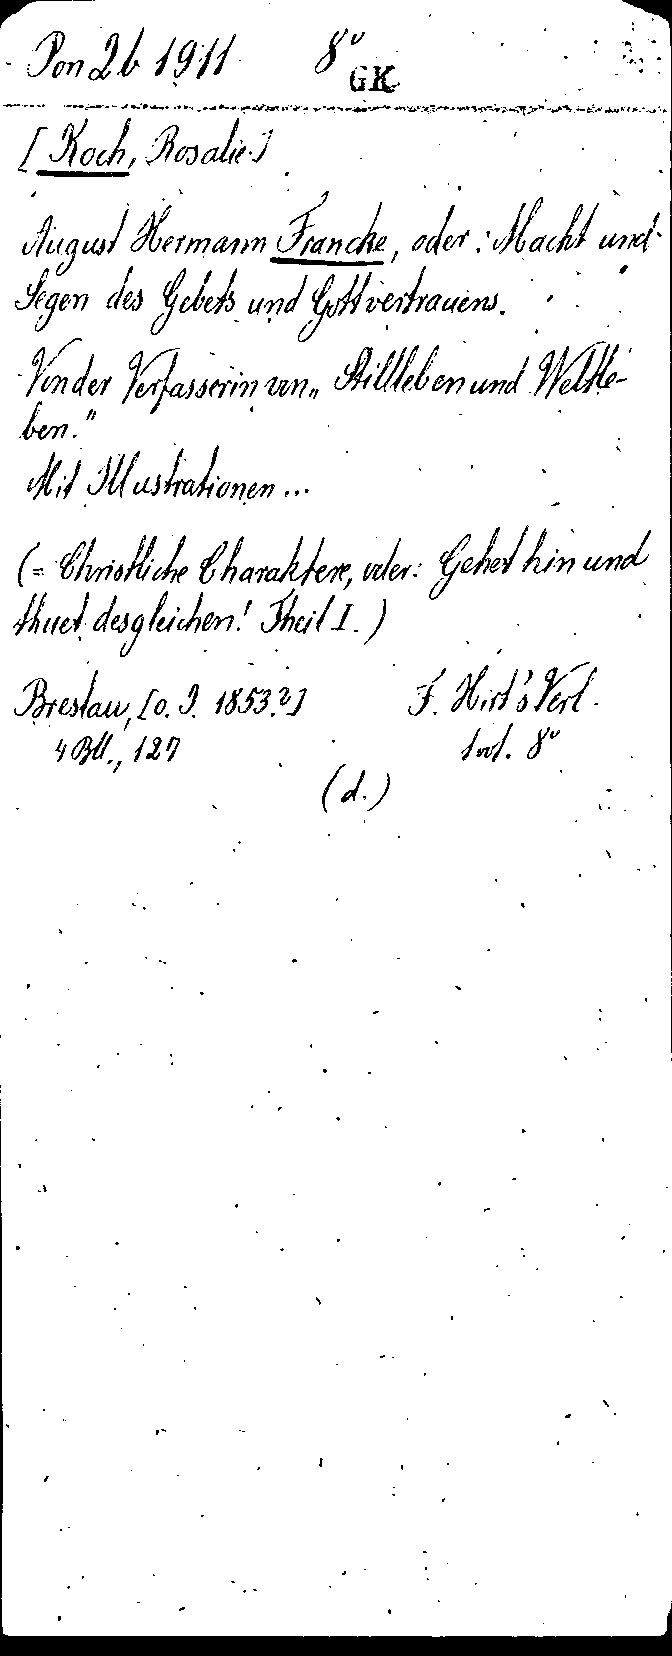 Pon 2b 1911 8º
GK
[Koch, Rosalie.]
August Hermann Francke, oder: Macht und
Segen des Gebets und Gottvertrauens.
Von der Verfasserin von „Stillleben und Weltle-
ben."
Mit Illustrationen...
(= Christliche Charaktere, oder: Gehet hin und
thuet desgleichen! Theil I.)
Breslau, [o. J. 1853?] F. Hirt's Verl.
4 Bll., 127 1 vol. 8º
(d.)